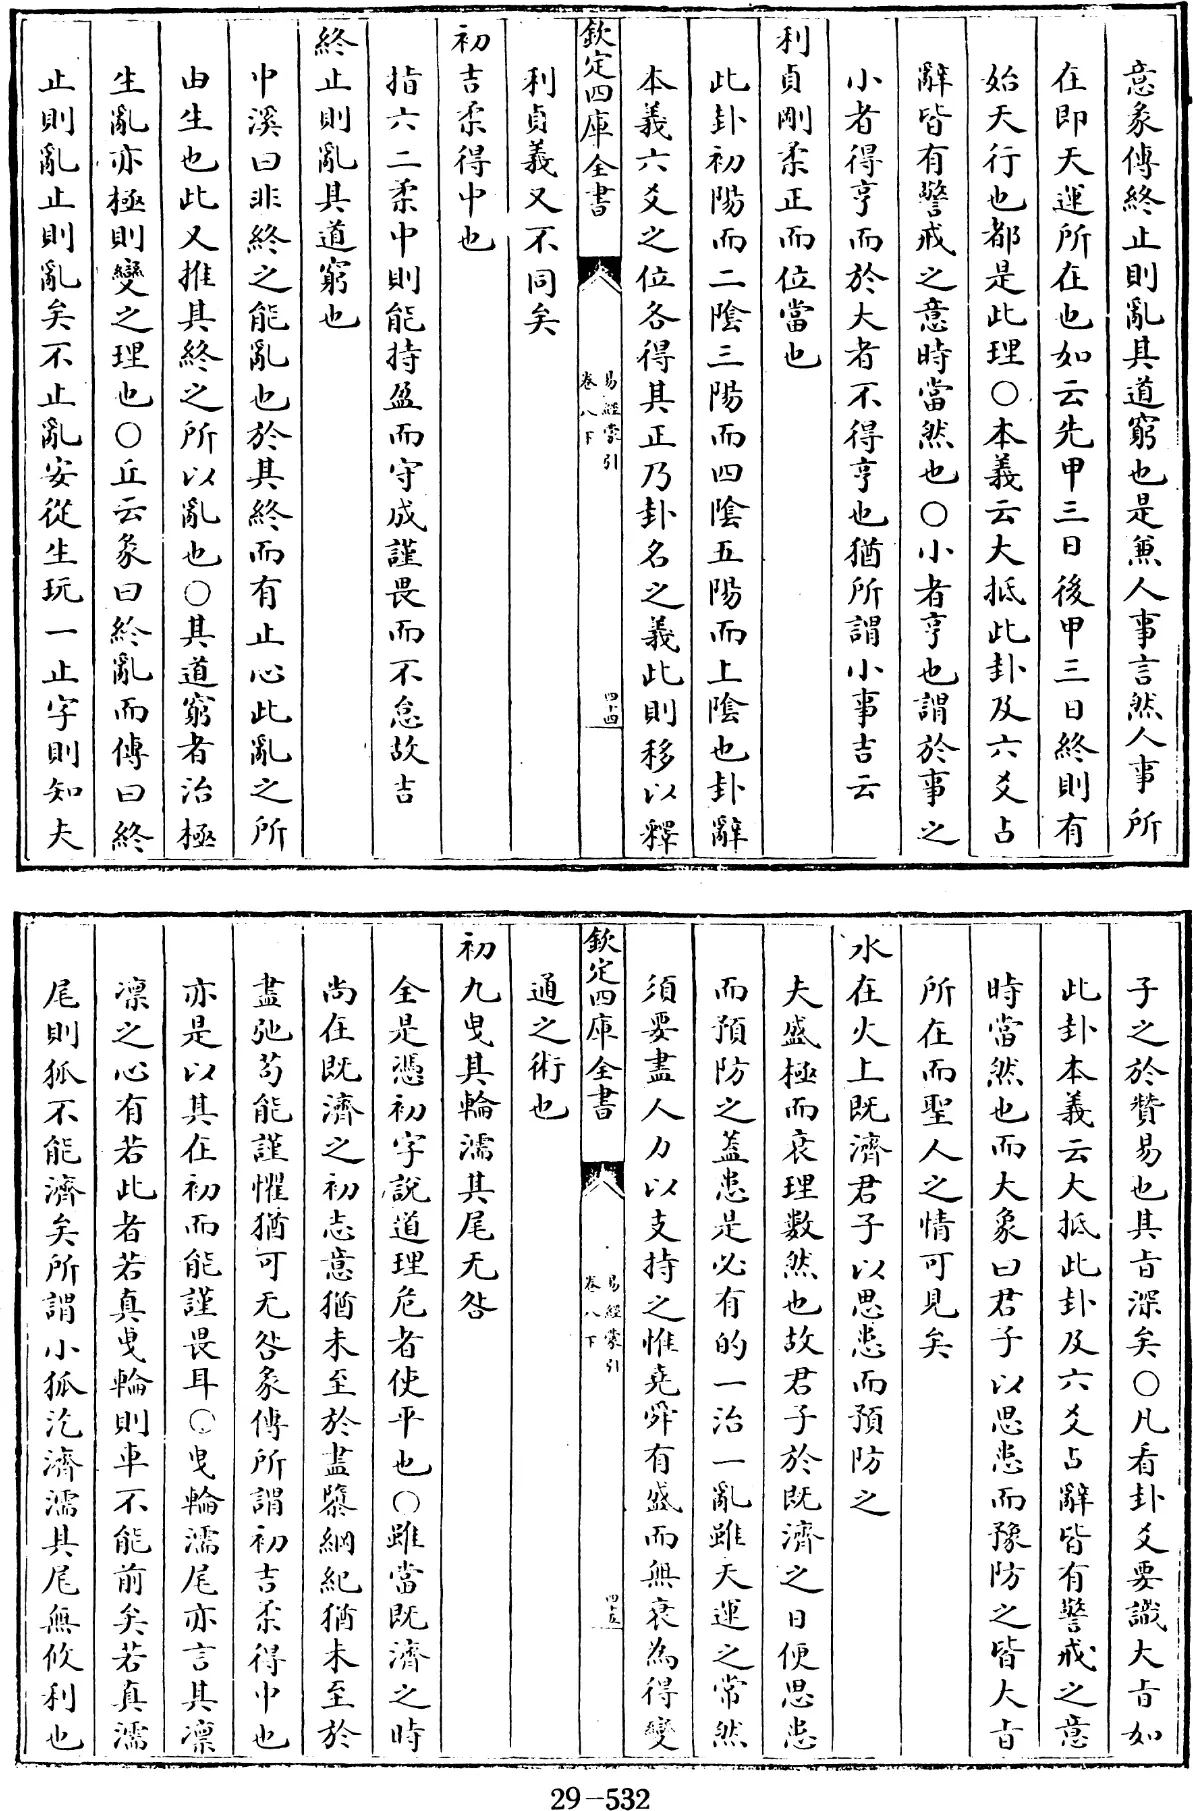 意彖傳終止則亂其道窮也是兼人事言然人事所
在即天運所在也如云先甲三日後甲三日終則有
始天行也都是此理○本義云大抵此卦及六爻占
辭皆有警戒之意時當然也○小者亨也謂於事之
小者得亨而於大者不得亨也猶所謂小事吉云
利貞剛柔正而位當也
此卦初陽而二陰三陽而四陰五陽而上陰也卦辭
本義六爻之位各得其正乃卦名之義此則移以釋
欽定四庫全書
易經蒙引
卷八下
四十四
利貞義又不同矣
初吉柔得中也
指六二柔中則能持盈而守成謹畏而不怠故吉
終止則亂其道窮也
中溪曰非終之能亂也於其終而有止心此亂之所
由生也此又推其終之所以亂也○其道窮者治極
生亂亦極則變之理也○丘云彖曰終亂而傳曰終
止則亂止則亂矣不止亂安從生玩一止字則知夫
子之於贊易也其旨深矣○凡看卦爻要識大旨如
此卦本義云大抵此卦及六爻占辭皆有警戒之意
時當然也而大象曰君子以思患而豫防之皆大旨
所在而聖人之情可見矣
水在火上既濟君子以思患而預防之
夫盛極而衰理數然也故君子於既濟之日便思患
而預防之蓋患是必有的一治一亂雖天運之常然
須要盡人力以支持之惟堯舜有盛而無衰為得變
欽定四庫全書
易經蒙引
卷八下
四十五
通之術也
初九曳其輪濡其尾无咎
全是憑初字說道理危者使平也○雖當既濟之時
尚在既濟之初志意猶未至於盡隳綱紀猶未至於
盡弛苟能謹懼猶可无咎彖傳所謂初吉柔得中也
亦是以其在初而能謹畏耳○曳輪濡尾亦言其凛
凛之心有若此者若真曳輪則車不能前矣若真濡
尾則狐不能濟矣所謂小狐汔濟濡其尾無攸利也
29-532